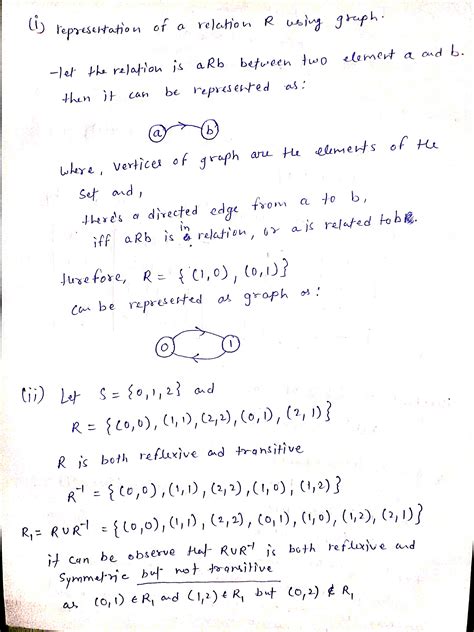 (i) representation of a relation R using graph.
-let the relation is aRb between two element a and b.
then it can be represented as:
a b
where, vertices of graph are the elements of the
set and,
there's a directed edge from a to b,
iff aRb is in relation, or a is related to b.
therefore, R = {(1,0), (0,1)}
can be represented as graph as:
0 1
(ii) Let S = {0,1,2} and
R = {(0,0), (1,1), (2,2), (0,1), (2,1)}
R is both reflexive and transitive
R⁻¹ = {(0,0), (1,1), (2,2), (1,0), (1,2)}
R₁ = R∪R⁻¹ = {(0,0), (1,1), (2,2), (0,1), (1,0), (1,2), (2,1)}
it can be observe that R∪R⁻¹ is both reflexive and
Symmetric but not transitive
as (0,1) ∈ R₁ and (1,2) ∈ R₁ but (0,2) ∉ R₁